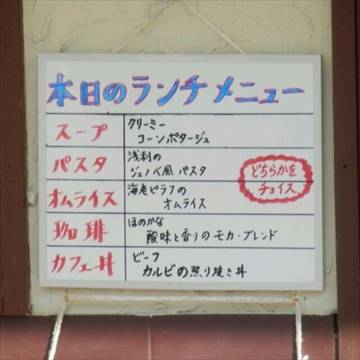 本日のランチメニュー
スープ
クリーミー
コーンポタージュ
パスタ
浅利の
ジェノベ風 パスタ
オムライス
海老ピラフの
オムライス
どちらかを
チョイス
珈琲
ほのかな
酸味と香りのモカ・ブレンド
カフェ丼
ビーフ
カルビの照り焼き丼